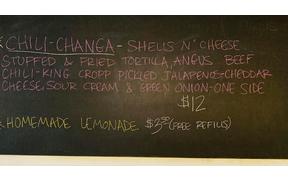 CHILI-CHANGA - SHELLS N' CHEESE
STUFFED & FRIED TORTILLA, ANGUS BEEF
CHILI-KING CROPP PICKLED JALAPENOS-CHEDDAR
CHEESE, SOUR CREAM & GREEN ONION-ONE SIDE
$12
HOMEMADE LEMONADE $3.50 (FREE REFILLS)